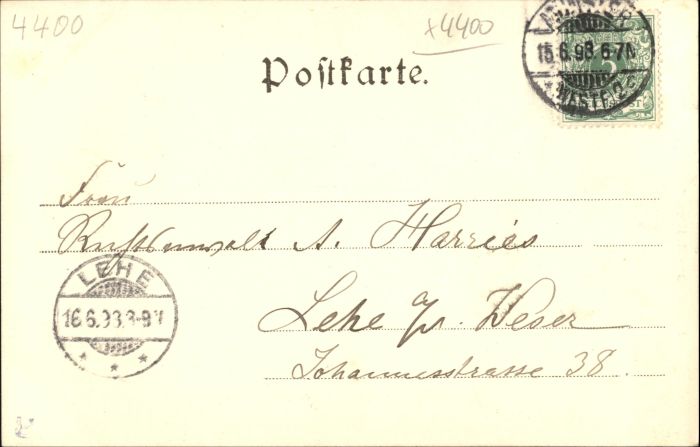 4400
x4400
MÜNSTER
15.6.98 6-7N
* WESTF. 2 c
Postkarte.
Frau
Rechtsanwalt A. Harries
Lehe a/d. Weser
Johannesstrasse 38.
LEHE
16.6.98.8-9V
* * *